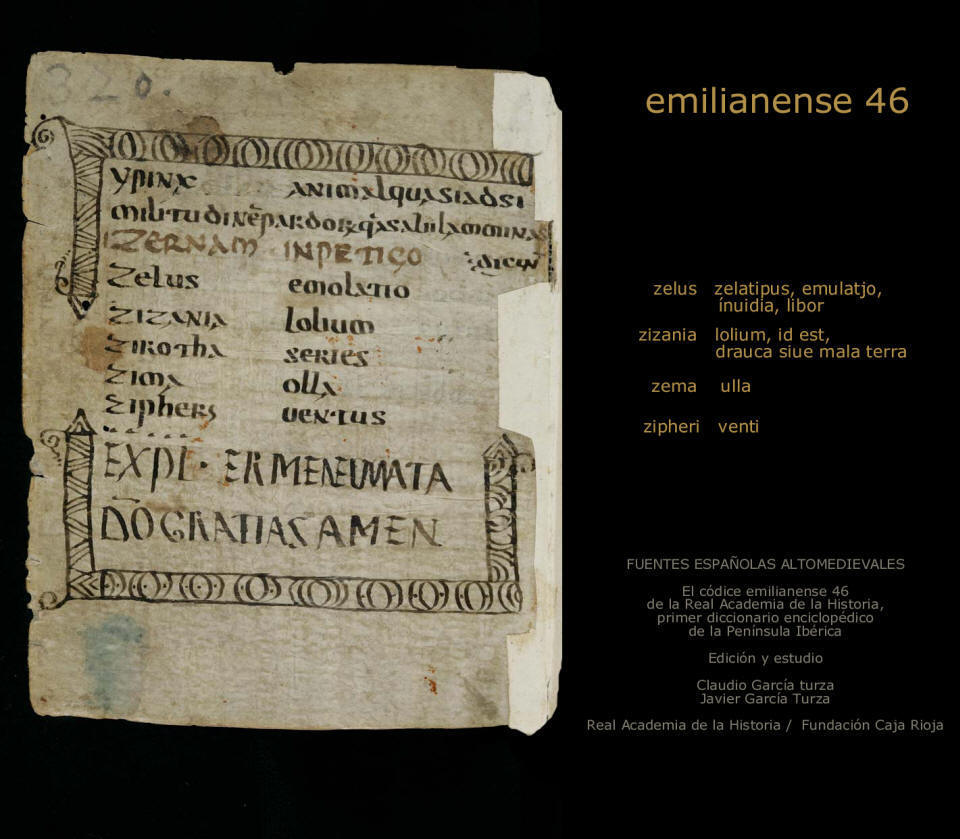 320.
emilianense 46
ypinx animal quasi ad si
militudinē pardor
IZERNAM INPETIGO dicun
Zelus emolatio
ZIZANIA lolium
Zirotha series
Zima olla
Ziphers uentus
EXPL · ERMENEUMATA
DO GRATIAS AMEN
zelus zelatipus, emulatjo,
ínuidia, libor
zizania lolium, id est,
drauca siue mala terra
zema ulla
zipheri venti
FUENTES ESPAÑOLAS ALTOMEDIEVALES
El códice emilianense 46
de la Real Academia de la Historia,
primer diccionario enciclopédico
de la Península Ibérica
Edición y estudio
Claudio García turza
Javier García Turza
Real Academia de la Historia / Fundación Caja Rioja